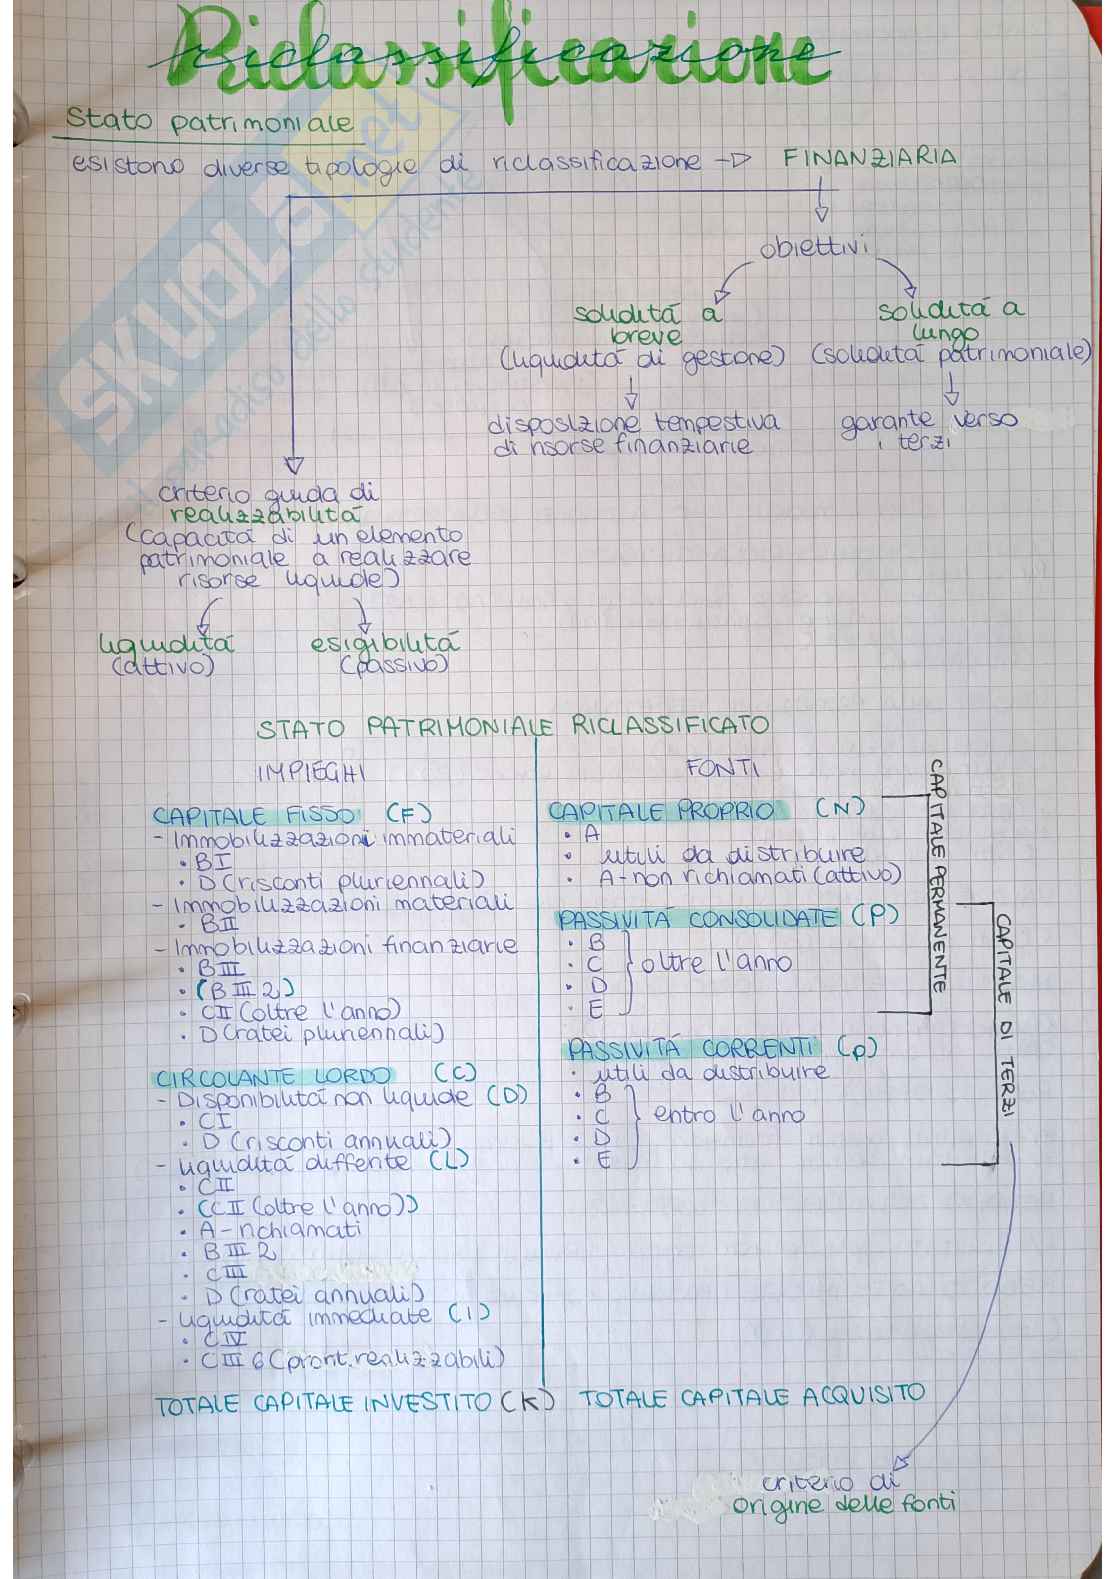 Riclassificazione
Stato patrimoniale
esistono diverse tipologie di riclassificazione → FINANZIARIA
obiettivi
solidità a
breve
(liquidità di gestone)
solidità a
lungo
(solidità patrimoniale)
disposizione tempestiva
di risorse finanziarie
garante verso
i terzi
criterio guida di
realizzabilità
(capacità di un elemento
patrimoniale a realizzare
risorse liquide)
liquidità
(attivo)
esigibilità
(passivo)
STATO PATRIMONIALE RICLASSIFICATO
IMPIEGHI
CAPITALE FISSO (F)
- Immobilizzazioni immateriali
• BI
• D (risconti pluriennali)
- Immobilizzazioni materiali
• BII
- Immobilizzazioni finanziarie
• BIII
• (BIII2)
• CII (oltre l'anno)
• D (ratei pluriennali)
CIRCOLANTE LORDO (C)
- Disponibilità non liquide (D)
• CI
• D (risconti annuali)
- liquidità differite (L)
• CII
• (CII (oltre l'anno))
• A - richiamati
• BIII2
• CIII
• D (ratei annuali)
- liquidità immediate (I)
• CIV
• CIII6 (pront. realizzabili)
TOTALE CAPITALE INVESTITO (K)
FONTI
CAPITALE PROPRIO (N)
• A
• utili da distribuire
• A - non richiamati (attivo)
PASSIVITÀ CONSOLIDATE (P)
• B
• C
• D
• E
oltre l'anno
PASSIVITÀ CORRENTI (p)
• utili da distribuire
• B
• C
• D
• E
entro l'anno
TOTALE CAPITALE ACQUISITO
CAPITALE PERMANENTE
CAPITALE DI TERZI
criterio di
origine delle fonti
SKUOLA.net
dello studente